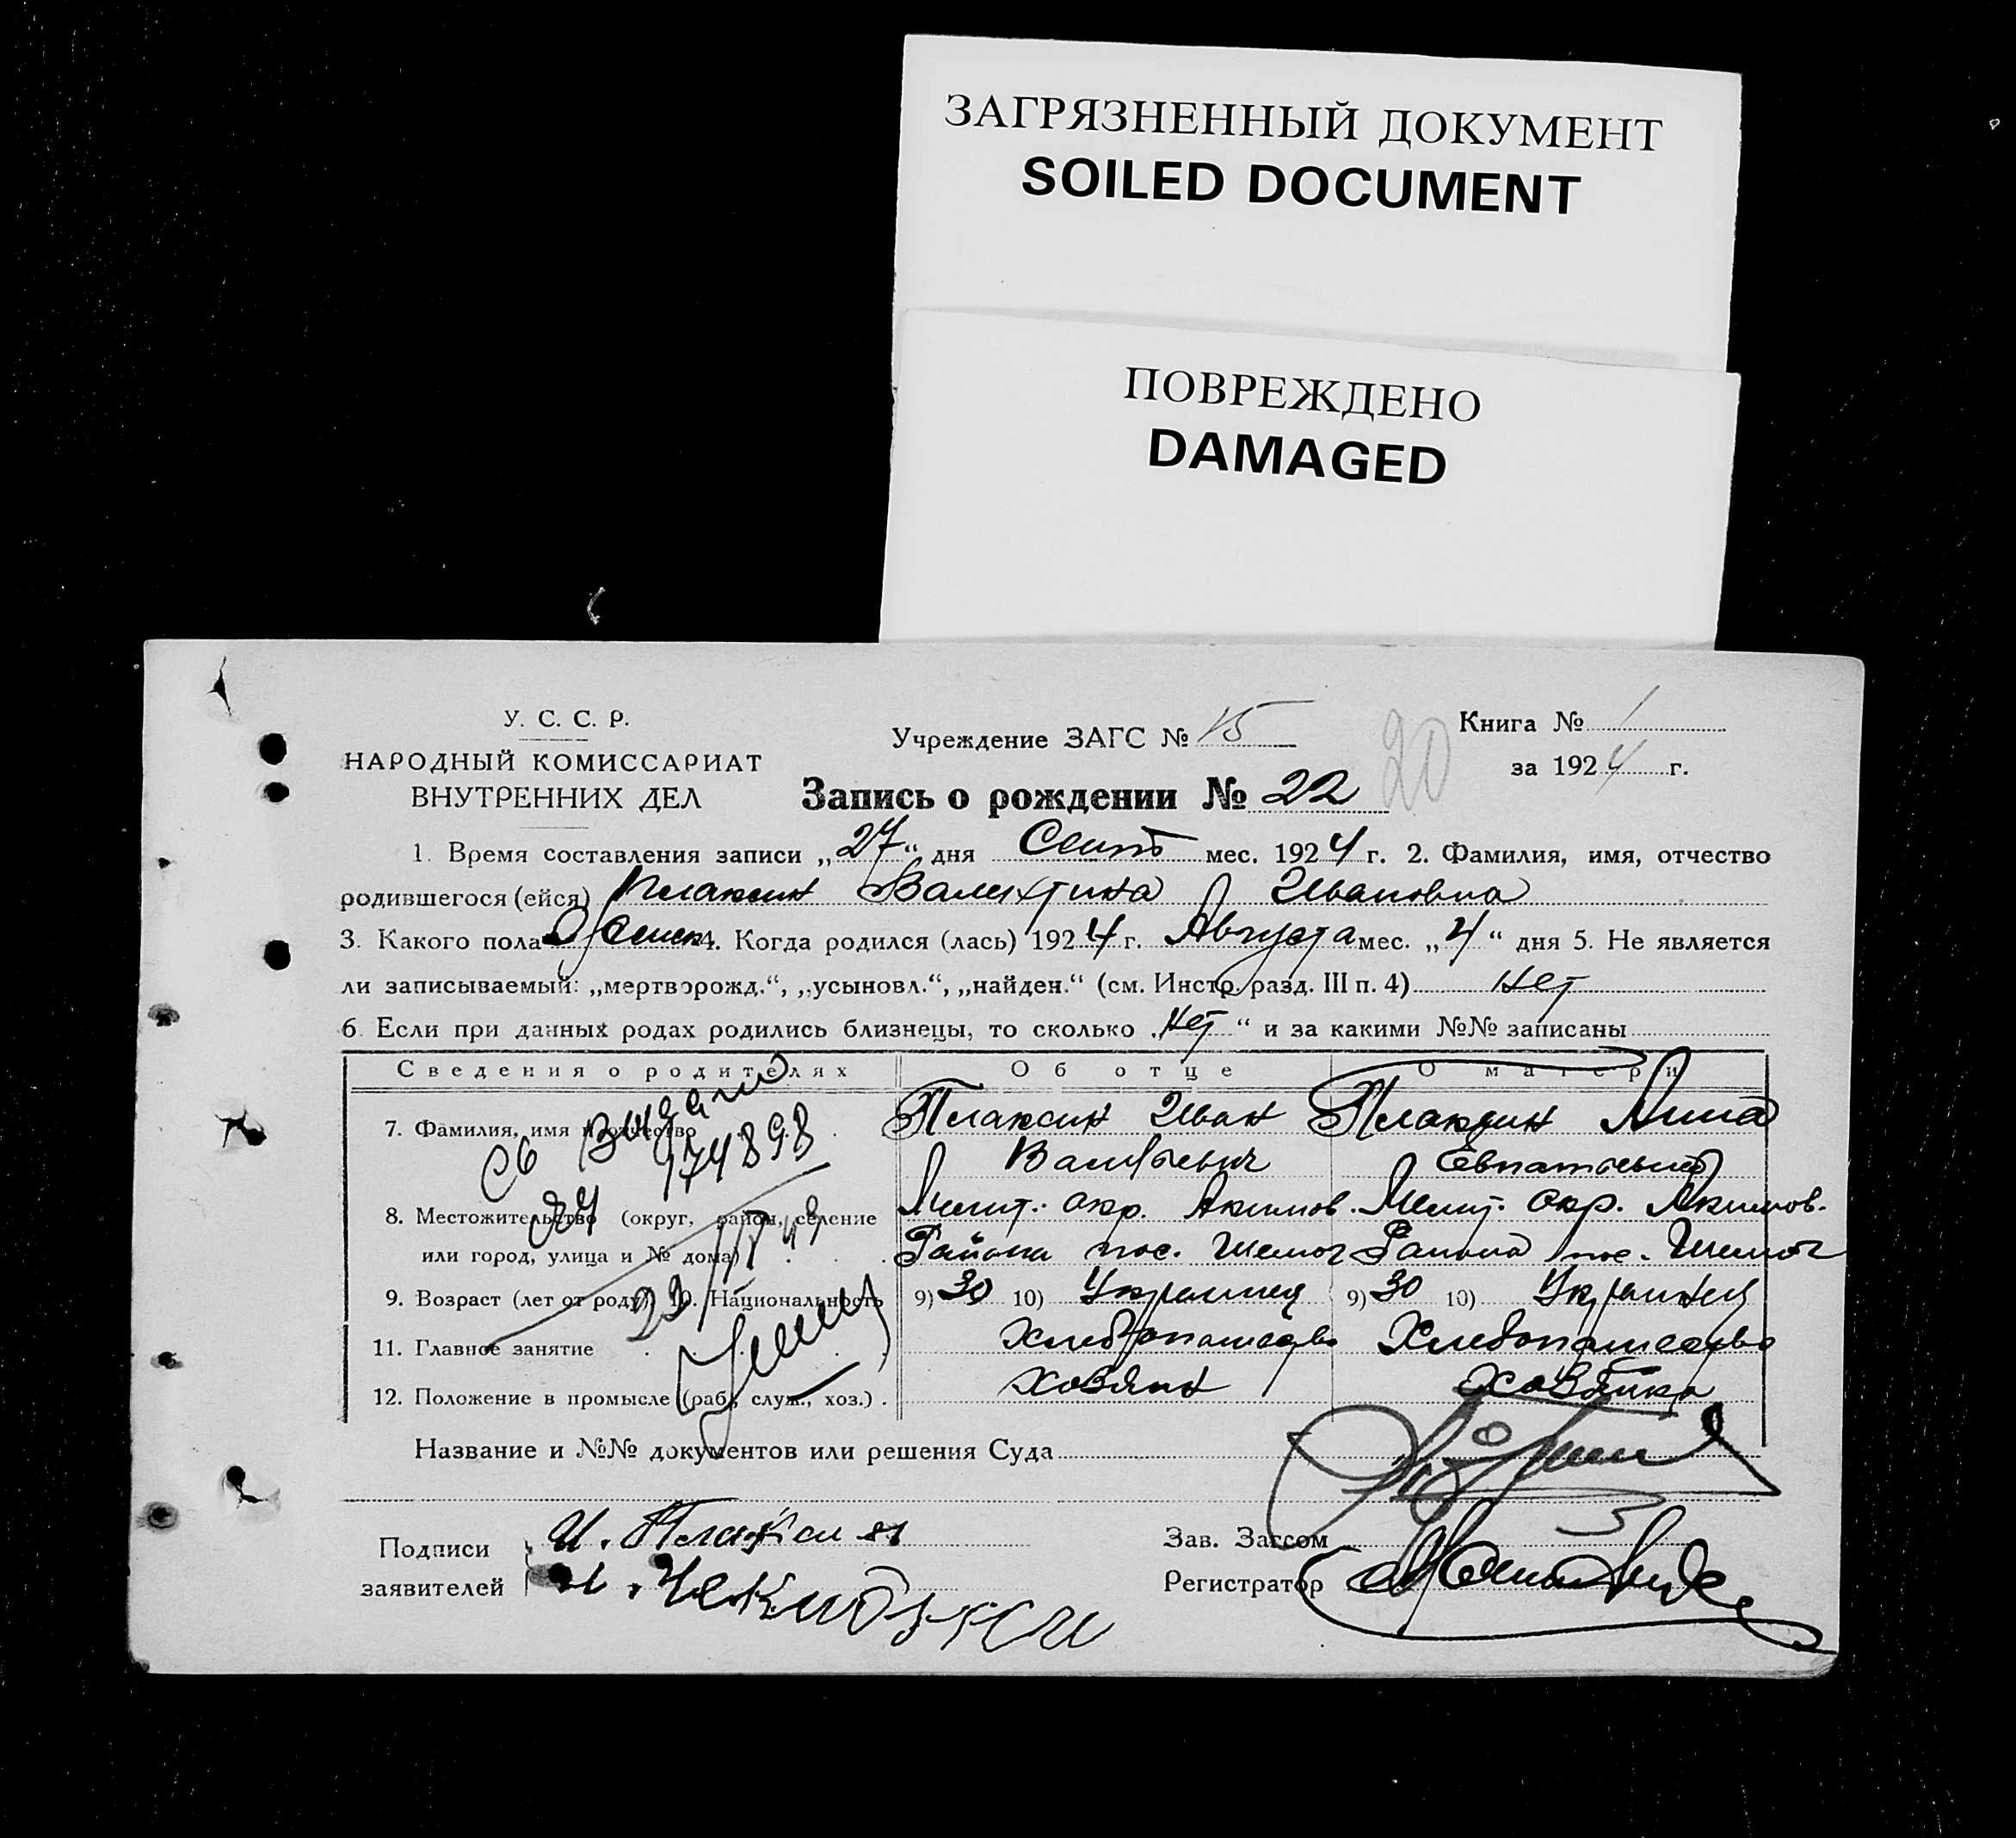 ЗАГРЯЗНЕННЫЙ ДОКУМЕНТ
SOILED DOCUMENT
ПОВРЕЖДЕНО
DAMAGED
У. С. С. Р.
НАРОДНЫЙ КОМИССАРИАТ
ВНУТРЕННИХ ДЕЛ
Учреждение ЗАГС № 15
20
Книга № 1
за 1924 г.
Запись о рождении № 22
1. Время составления записи „27“ дня Сент мес. 1924 г. 2. Фамилия, имя, отчество
родившегося (ейся) Плаксин Валентина Ивановна
3. Какого пола Женск 4. Когда родился (лась) 1924 г. Августа мес. „4“ дня 5. Не является
ли записываемый: „мертворожд.“, „усыновл.“, „найден.“ (см. Инстр. разд. III п. 4) нет
6. Если при данных родах родились близнецы, то сколько „нет“ и за какими №№ записаны
Сведения о родителях Об отце О матери
7. Фамилия, имя и отчество Плаксин Иван Плаксин Анна
Васильевич
8. Местожительство (округ, район, селение Мелит. окр. Акимов. Мелит. окр. Акимов.
или город, улица и № дома) Района пос. Района пос.
9. Возраст (лет от роду) 10. Национальность 9) 30 10) Украинец 9) 30 10)
11. Главное занятие Хлебопашество Хлебопашество
12. Положение в промысле (раб., служ., хоз.) Хозяин Хозяйка
Св выдано
174898
Название и №№ документов или решения Суда
Подписи И. Плаксин
заявителей
Зав. Загсом
Регистратор